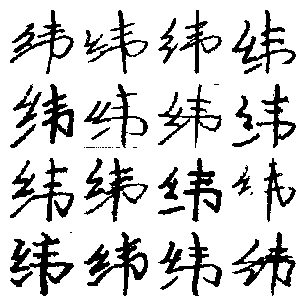 纬纬纬纬
纬纬纬纬
纬纬纬纬
纬纬纬纬